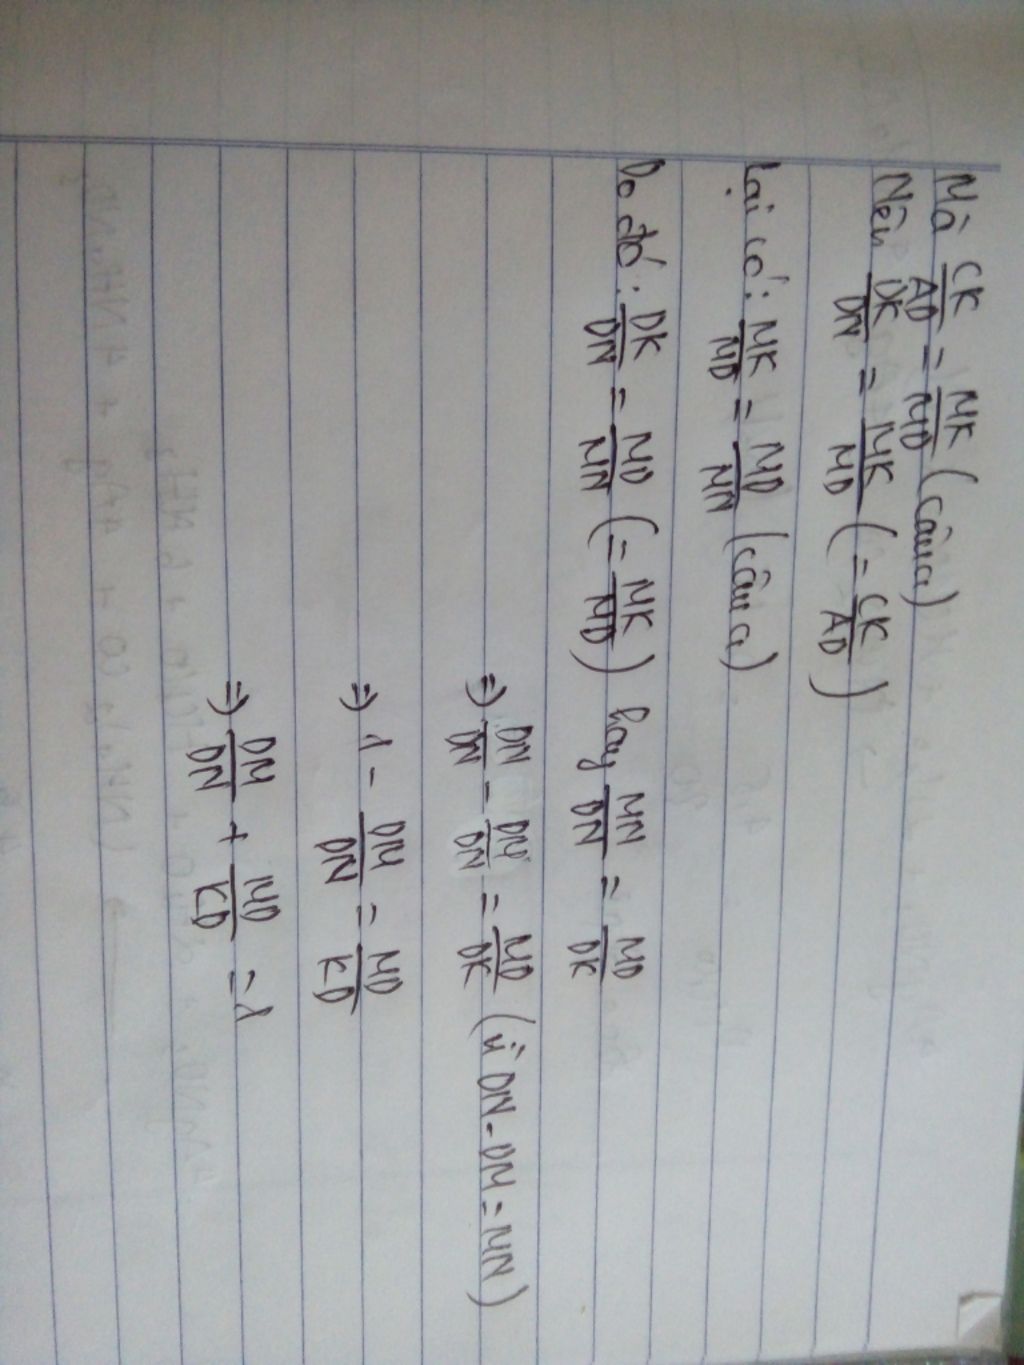 Mà CK/AD = MK/MD (câu a)
Nên DK/DN = MK/MD (= CK/AD)
Lại có: MK/MD = MD/MN (câu a)
Do đó: DK/DN = MD/MN (= MK/MD) hay MN/DN = MD/DK
=> DN/DN - DM/DN = MD/DK (vì DN - DM = MN)
=> 1 - DM/DN = MD/KD
=> DM/DN + MD/KD = 1